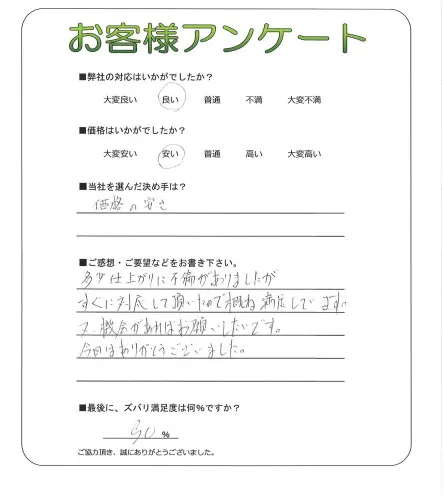 お客様アンケート
■弊社の対応はいかがでしたか？
大変良い 良い 普通 不満 大変不満
■価格はいかがでしたか？
大変安い 安い 普通 高い 大変高い
■当社を選んだ決め手は？
価格の安さ
■ご感想・ご要望などをお書き下さい。
多少仕上がりに不備がありましたが
すぐに対応して頂いたので概ね満足しています。
又、機会があればお願いしたいです。
今回はありがとうございました。
■最後に、ズバリ満足度は何%ですか？
%
ご協力頂き、誠にありがとうございました。